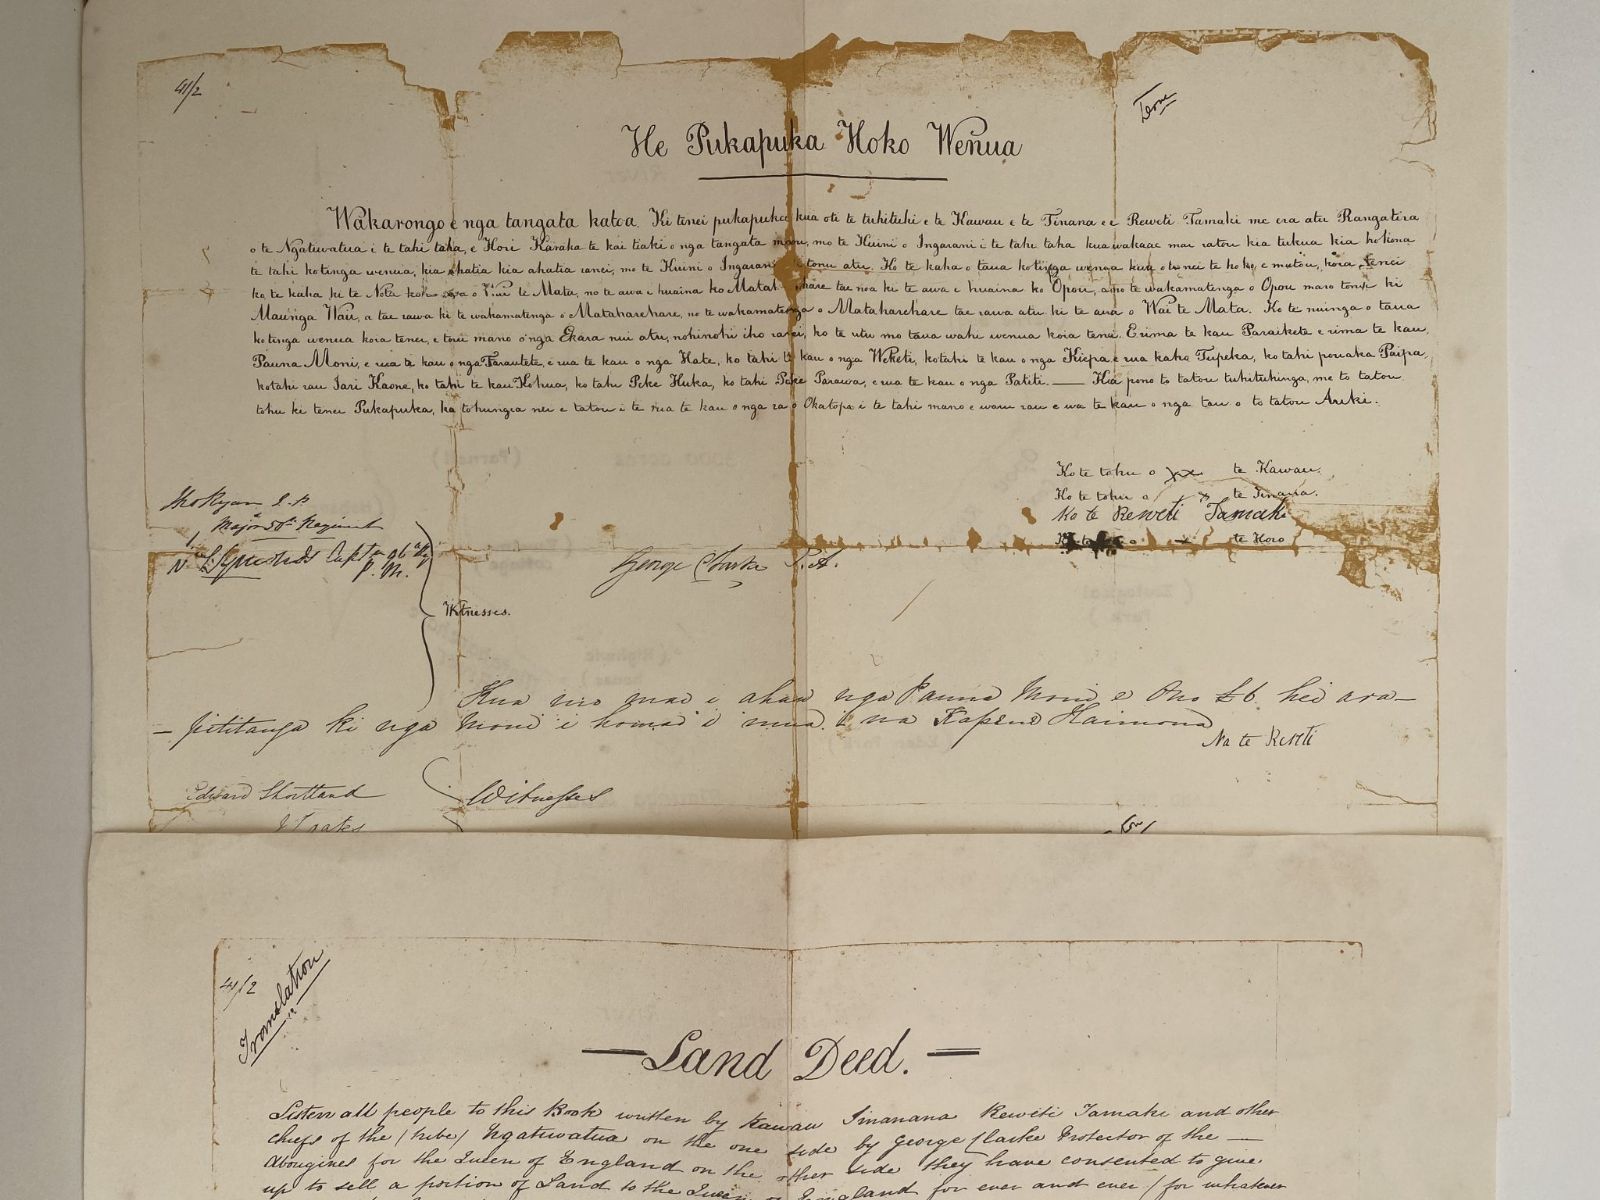 41/2
He Pukapuka Hoko Wenua
Wakarongo e nga tangata katoa. Ki tenei pukapuka kua oti te tuhituhi e te Kawau e te Tinana e e Reweti Tamaki me era atu Rangatira
o te Ngatiwatua i te tahi taha, e Hori Karaka te kai tiaki o nga tangata maori, mo te Kuini o Ingarani i te tahi taha kua wakaae mai ratou kia tukua kia hokona
te tahi kotinga wenua, kia ahatia kia ahatia ranei, mo te Kuini o Ingarani tonu atu. Ko te kaha o taua kotinga wenua kua oti nei te hoko, e matou, koia tenei
ko te kaha ki te Nota ko te Mata, no te awa i huaina ko Matahārehare tae noa ki te awa i huaina ko Opou, a no te wakamatenga o Opou maro tonu ki
Maunga Wau, a tae rawa ki te wakamatenga o Mataharehare, no te wakamatenga o Mataharehare tae rawa atu ki te awa o Wai te Mata. Ko te nuinga o taua
kotinga wenua koia tenei, e toru mano o nga Ekara nui atu, nohinohi iho ranei, ko te utu mo taua wahi wenua koia tenei. E rima te kau Paraikete e rima te kau
Pauna Moni, e rua te kau o nga Tarautete, e rua te kau o nga Hate, ko tahi te kau o nga Weketi, ko tahi te kau o nga Kiepa e rua kaho Tupeka, ko tahi pouaka Paipa,
kotahi rau Iari Kaone, ko tahi te kau Kohua, ko tahi Peke Huka, ko tahi Peke Parawa, e rua te kau o nga Patiti. — Kia pono to tatou tuhituhinga, me to tatou
tohu ki tenei Pukapuka, ka tohungia nei e tatou i te rua te kau o nga ra o Okatopa i te tahi mano e waru rau e wa te kau o nga tau o to tatou Ariki.
Ko te tohu o xx te Kawau.
Ko te tohu o x te Tinana.
Ko te Reweti Tamaki
te Horo
Major 50th Regiment
Symonds Captn 96th Regt
P. M.
George Clarke P. A.
Witnesses.
Kua riro mai i ahau nga Pauna Moni e Ono £6 hei ara-
- pititanga ki nga moni i homai i mua i na Kapene Haimona
Na te Reweti
Edward Shortland
Witnesses
41/2
Translation
— Land Deed. —
Listen all people to this Book written by Kawau Tinanana Reweti Tamaki and other
chiefs of the (tribe) Ngatiwatua on the one side by George Clarke Protector of the —
Aborigines for the Queen of England on the other side they have consented to give
up to sell a portion of Land to the Queen of England for ever and ever (for whatever